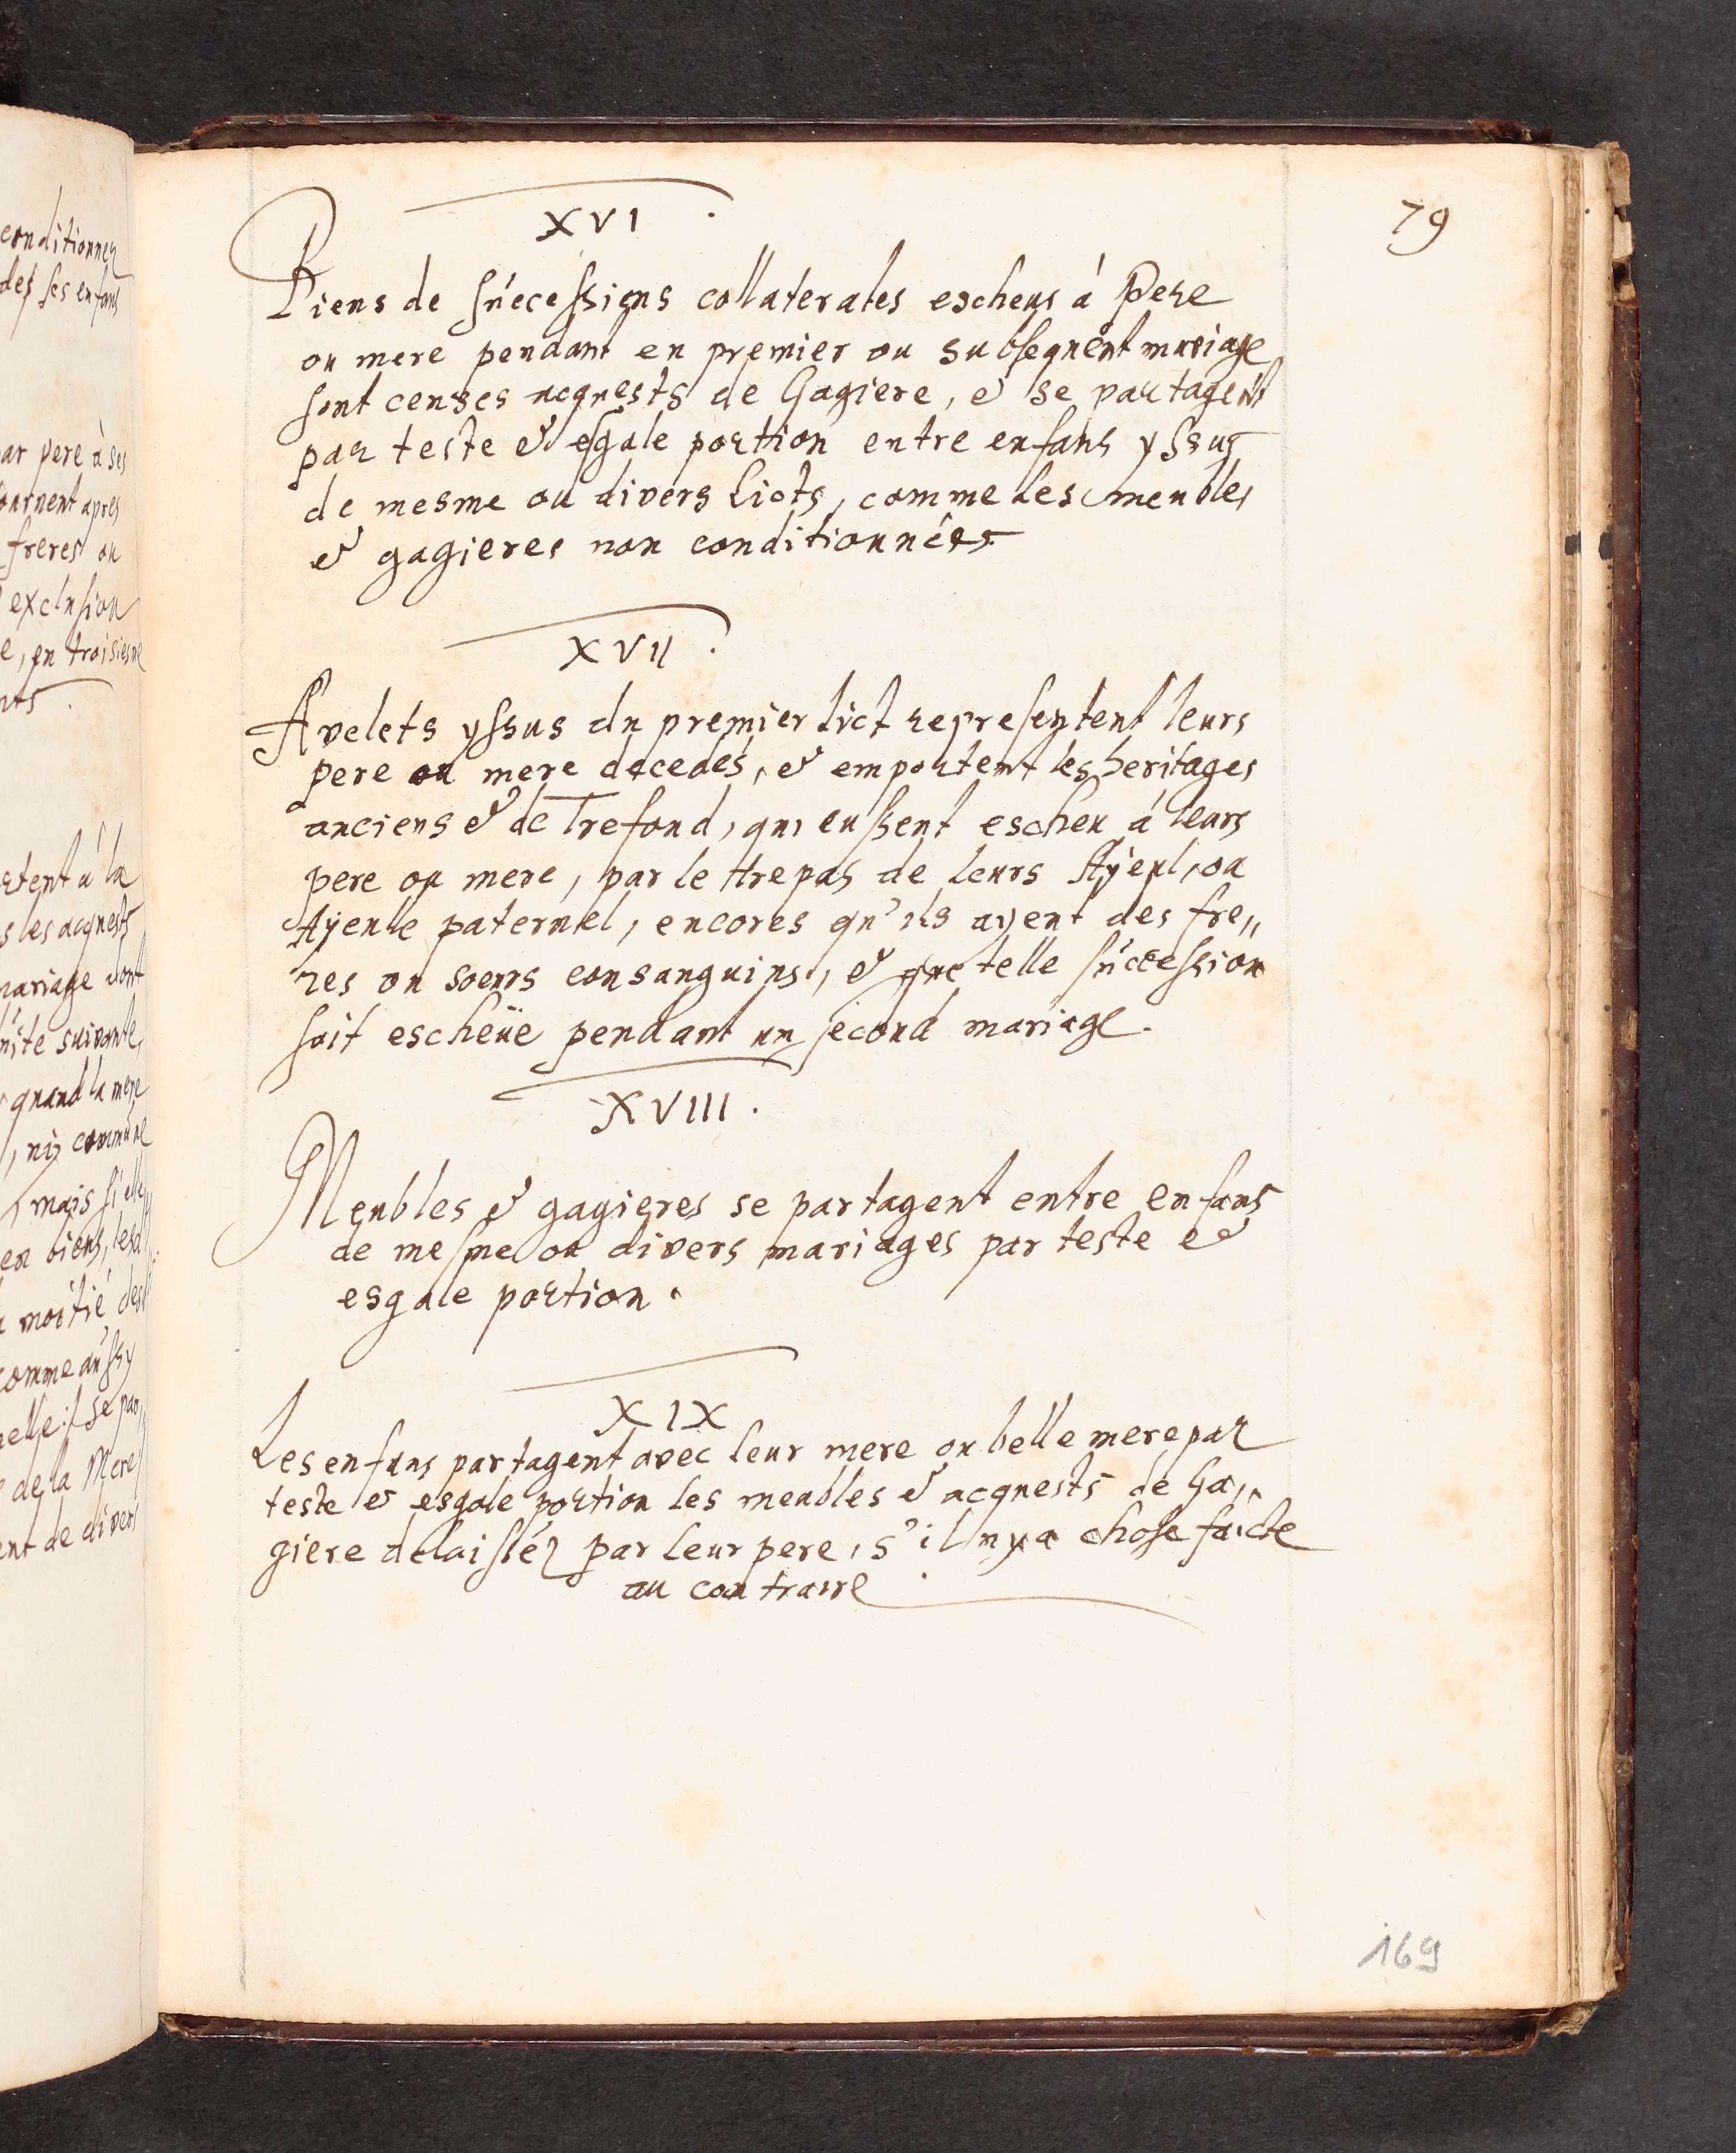 conditionnez
des ses enfans
ar pere à ses
ournent apres
freres ou
exclusion
e, en troisiesme
nts.
à la
s les acquests
mariage dont
suivante,
quand la mere
, ny commune
mais si elle
en biens,
moitié des
comme aussy
elle: se par,,
de la Mere
ent de divers
79
XVI.
Biens de successions collaterales escheus á Pere
ou mere pendant en premier ou subsequent mariage
sont censes acquests de Gagiere, & se partagent
par teste & esgale portion entre enfans yssus
de mesme ou divers licts, comme les meubles
& gagieres non conditionnées
XVII.
Avelets yssus du premier lict representent leurs
pere ou mere decedés, & emportent les heritages
anciens & de Trefond, qui eussent escheu á leurs
pere ou mere, par le trepas de leurs Ayeul, ou
Ayeule paternel, encores qu'ils ayent des fre,,
res ou soeurs consanguins, & que telle succession
soit escheüe pendant un second mariage.
XVIII.
Meubles & gagieres se partagent entre enfans
de mesme ou divers mariages par teste &
esgale portion.
XIX
Les enfans partagent avec leur mere ou belle mere par
teste & esgale portion les meubles & acquests de Ga,,
giere delaissez par leur pere, s'il n'y a chose faicte
au contraire.
169